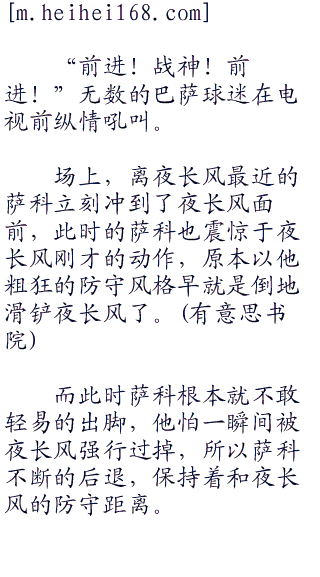 [m.heihei168.com]
“前进！战神！前
进！”无数的巴萨球迷在电
视前纵情吼叫。
场上，离夜长风最近的
萨科立刻冲到了夜长风面
前，此时的萨科也震惊于夜
长风刚才的动作，原本以他
粗狂的防守风格早就是倒地
滑铲夜长风了。(有意思书
院)
而此时萨科根本就不敢
轻易的出脚，他怕一瞬间被
夜长风强行过掉，所以萨科
不断的后退，保持着和夜长
风的防守距离。